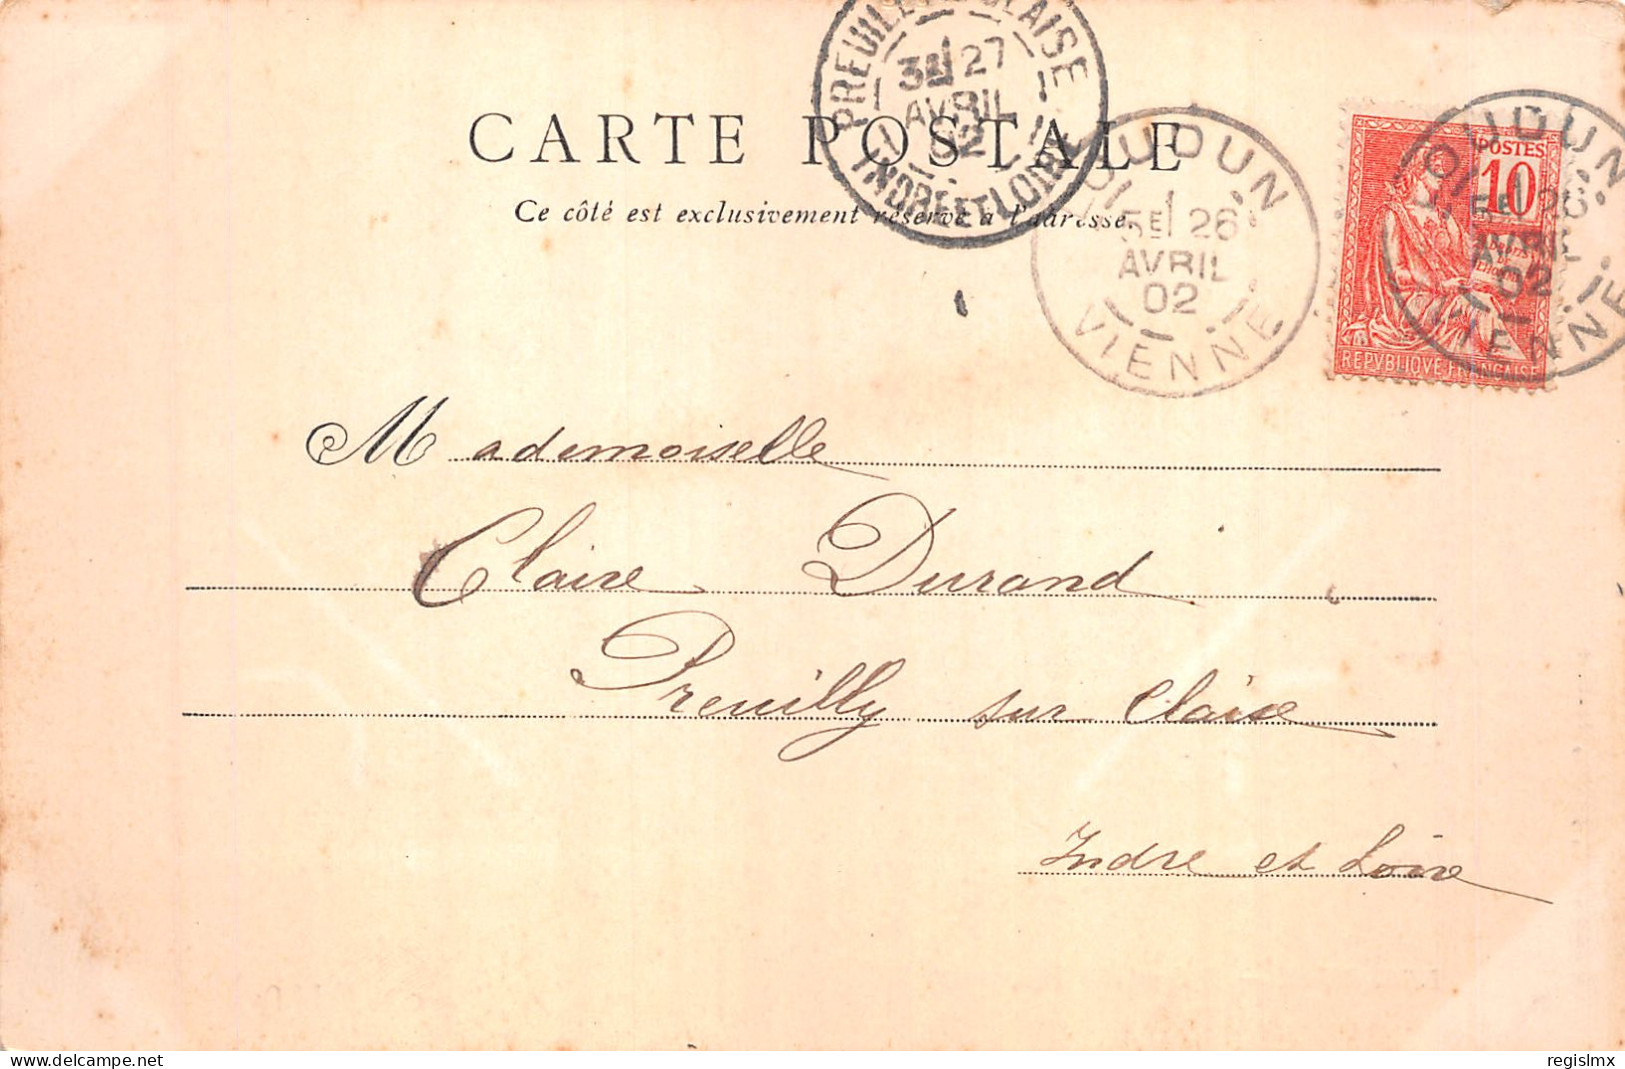 PREUILLY-S-CLAISE
3E 27
AVRIL
02
INDRE ET LOIRE
CARTE POSTALE
Ce côté est exclusivement réservé à l'adresse.
LOUDUN
5E 26
AVRIL
02
VIENNE
POSTES
10
DROITS
DE
L'HOMME
REPVBLIQVE FRANÇAISE
LOUDUN
5E 26
AVRIL
02
VIENNE
Mademoiselle
Claire Durand
Preuilly sur Claise
Indre et Loire
delcampe.net
regislmx